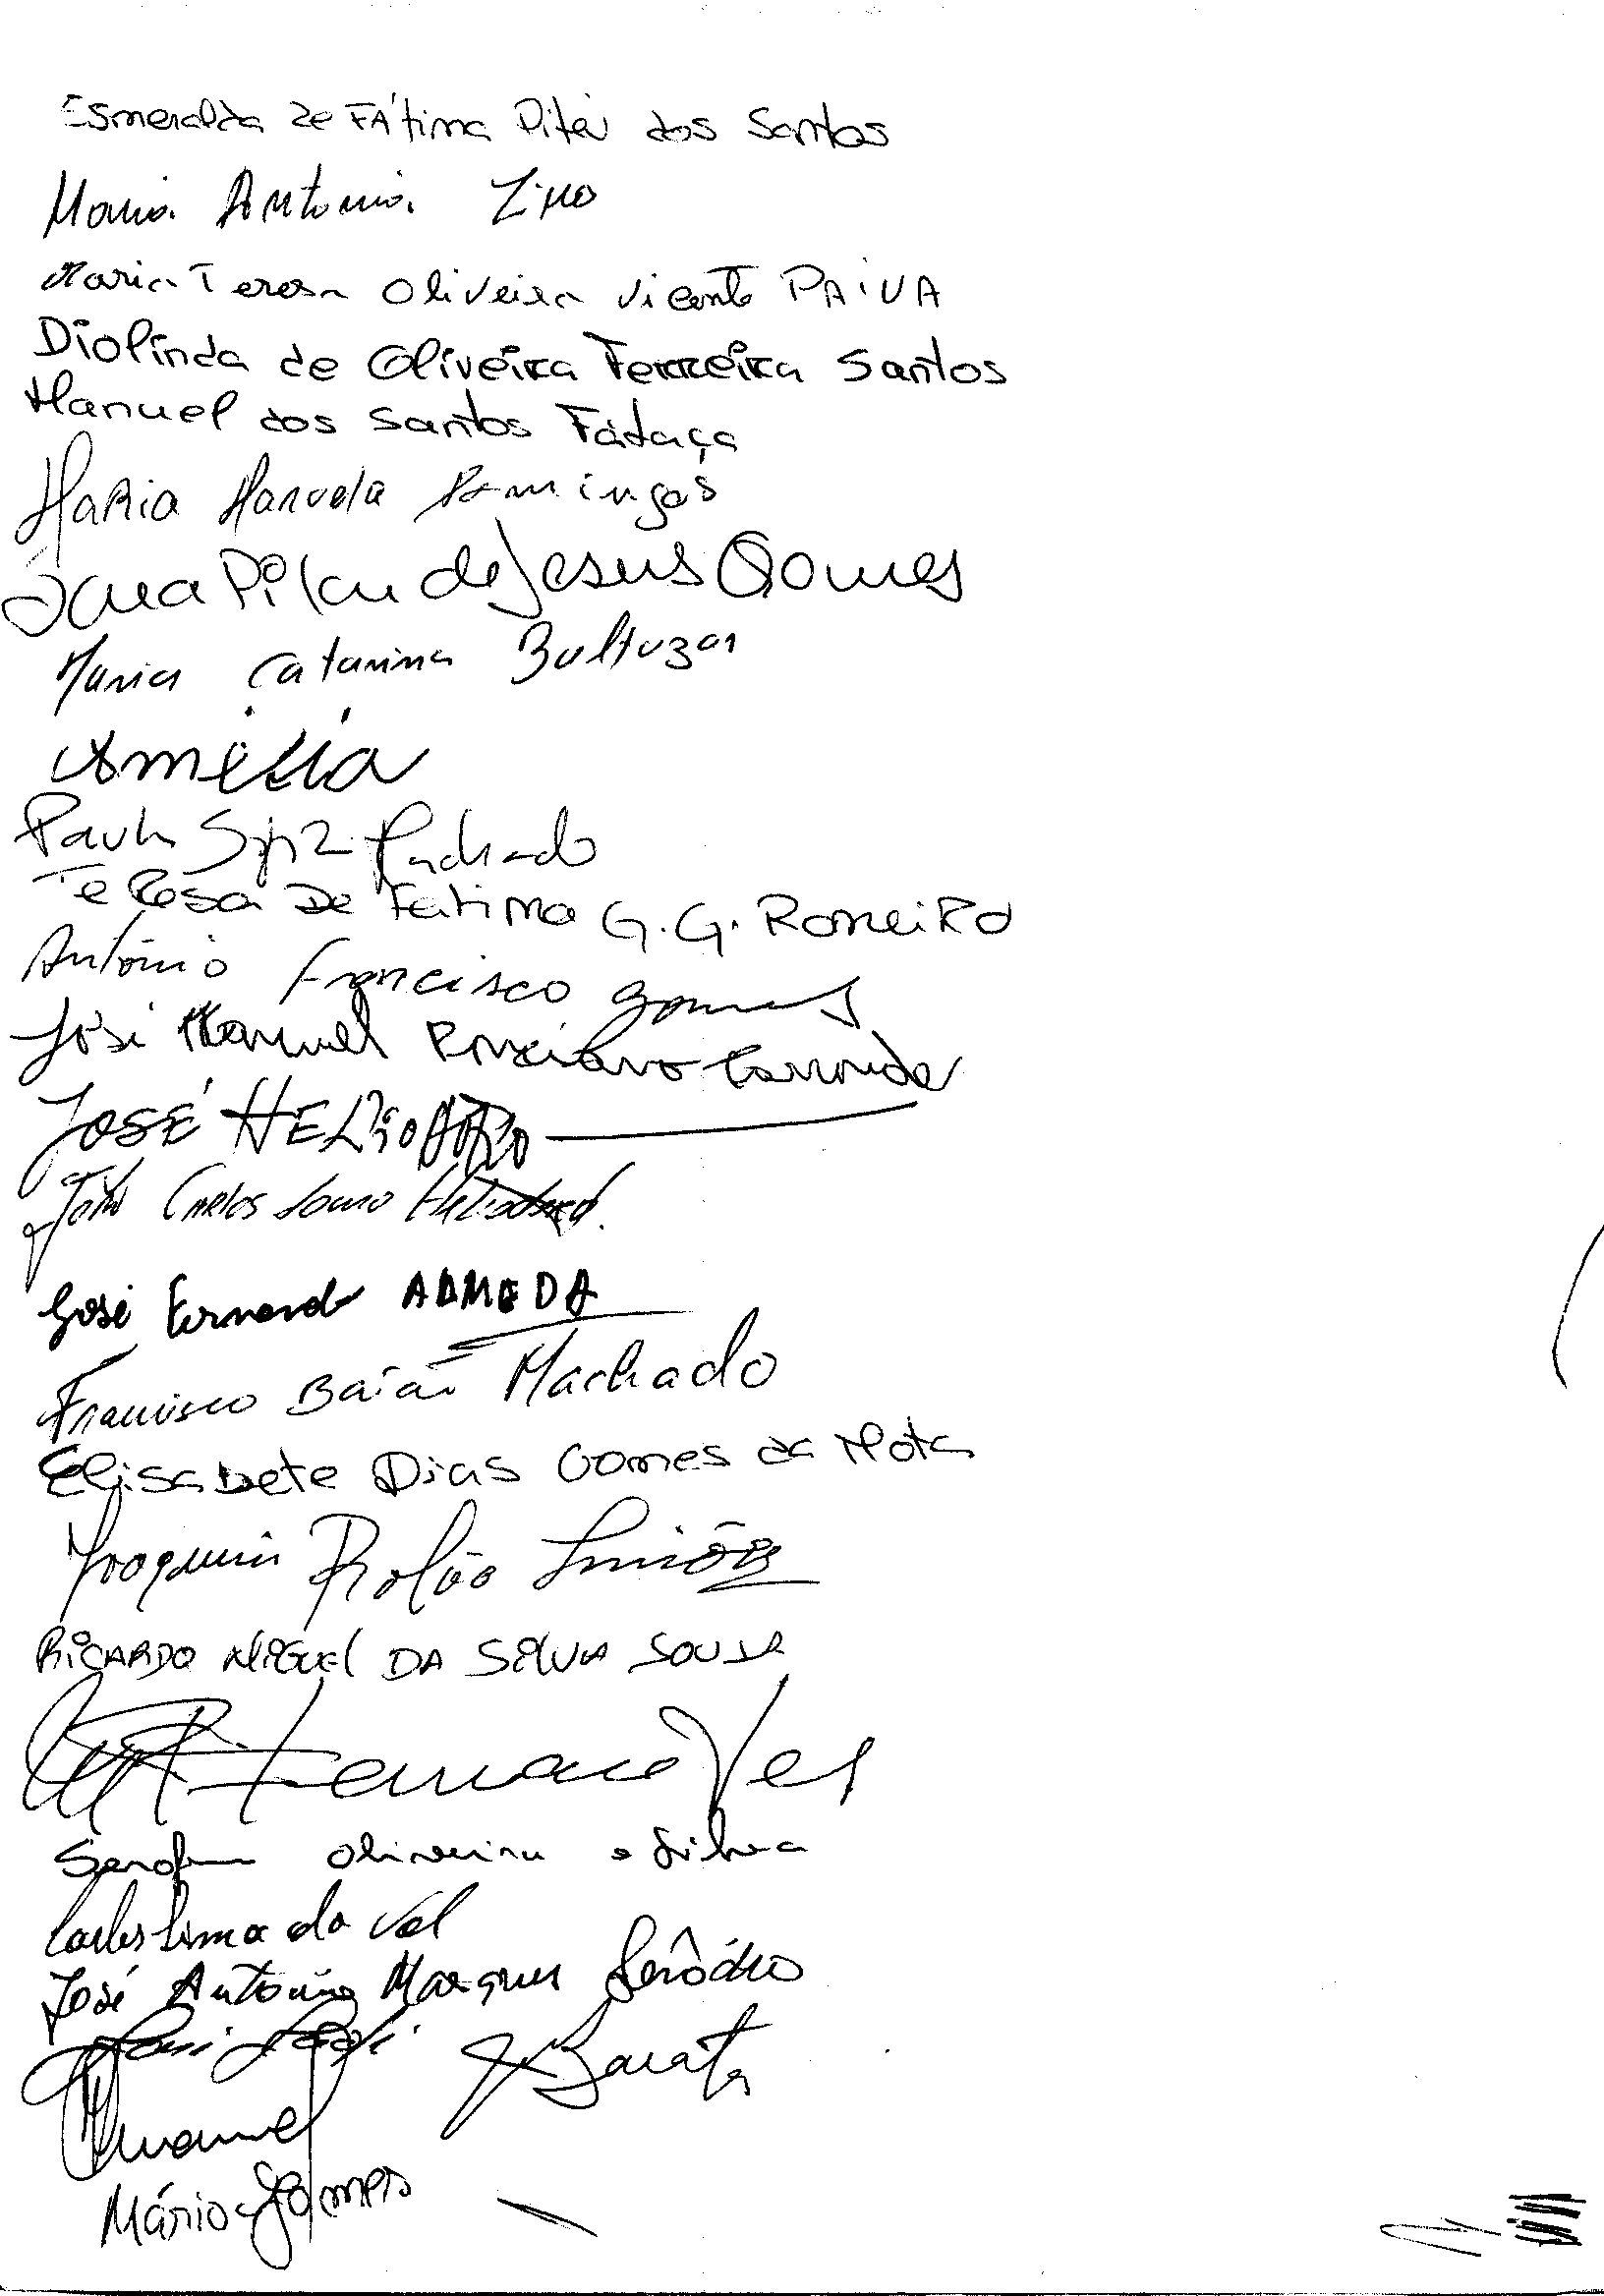 Esmeralda de Fátima Pitéi dos Santos
Maria Antonia Limo
Maria Teresa Oliveira Vicente PAIVA
Diolinda de Oliveira Ferreira Santos
Manuel dos Santos Fataça
Maria Manuela Domingos
Ana Pilar de Jesus Gomes
Maria Catarina Baltazar
Amélia
Paula Machado
Teresa De Fatima G. G. Romeiro
António Francisco Gomes
José Manuel
JOSÉ HELIODORO
João CARLOS Louro Heliodoro.
José Fernando ALMEDA
Francisco Baião Machado
Elisabete Dias Gomes da Mota
Joaquim Rolão Simões
RICARDO MIGUEL DA SILVA SOUSA
Serafim Oliveira e Silva
Carlos Lima do Val
José António Marques Serôdio
Barata
Manuel
Mário Gomes